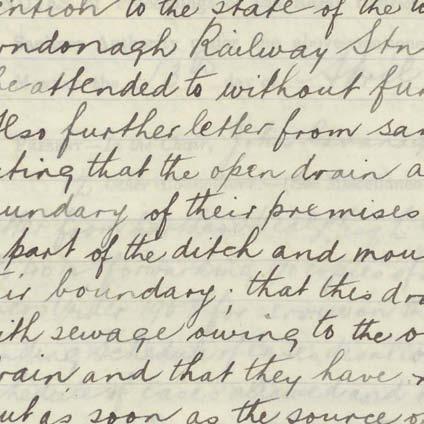 ention to the state of the
ndonagh Railway Stn
be attended to without fur
Also further letter from sam
ting that the open drain a
undary of their premises
part of the ditch and mou
ir boundary; that this dra
ith sewage owing to the o
rain and that they have
ut as soon as the source o